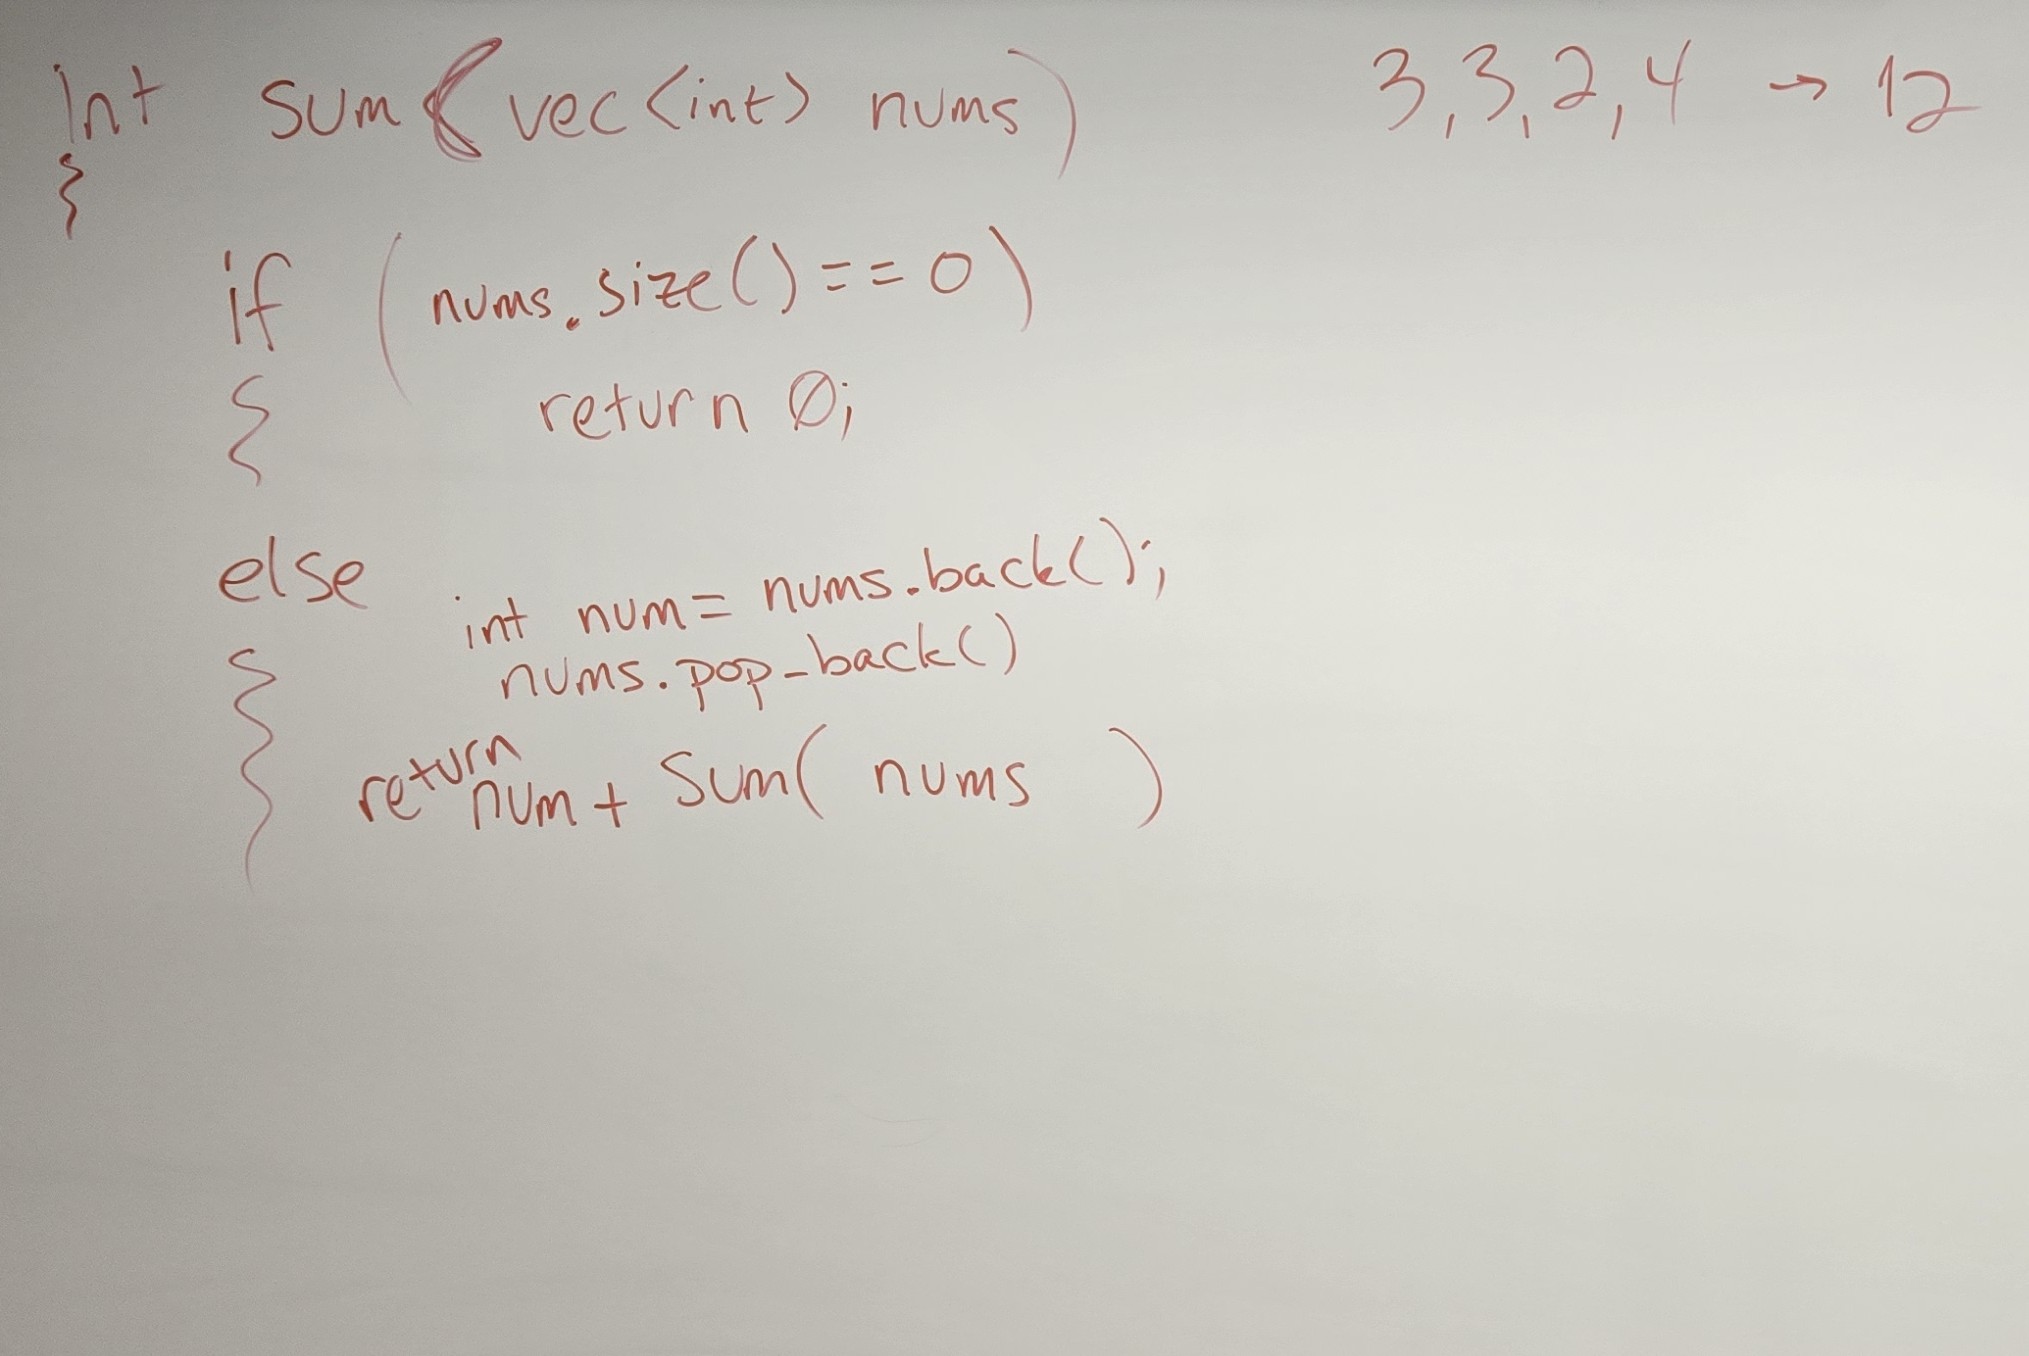 int sum(vec<int> nums) 3,3,2,4 → 12
{
if (nums.size()==0)
{ return 0;
else
int num = nums.back();
{ nums.pop_back()
return num + sum( nums )